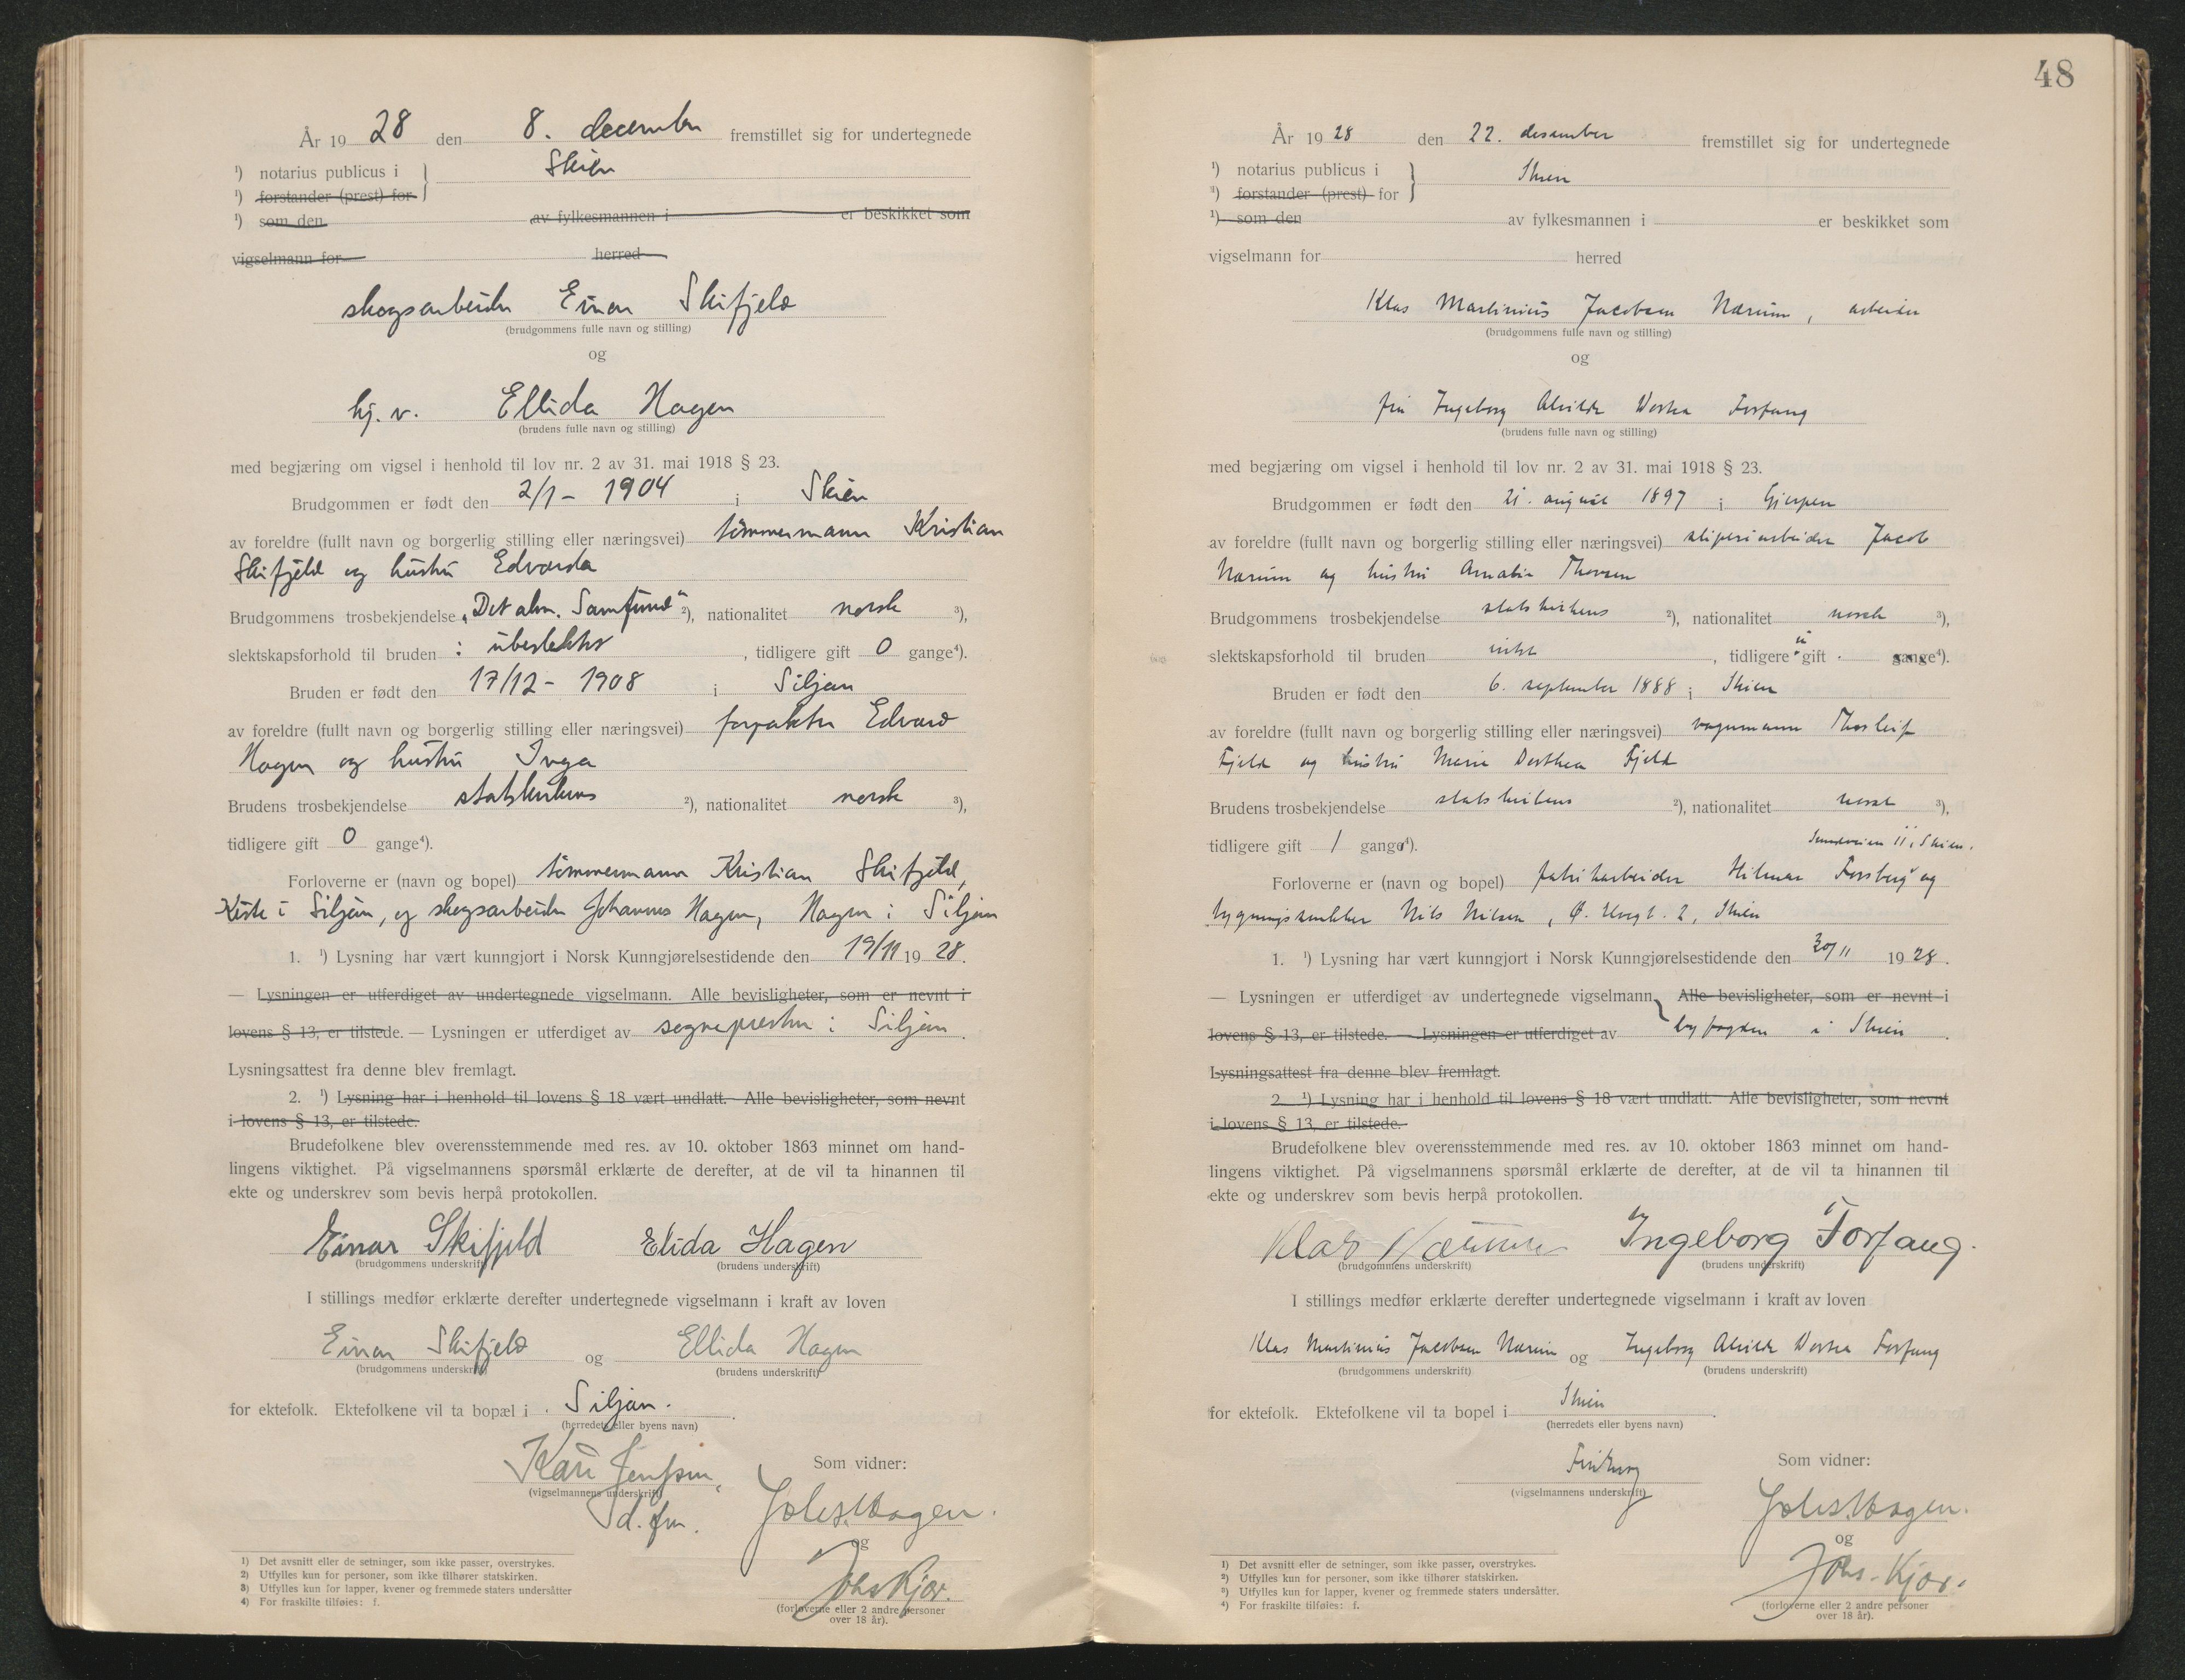 År 19 28 den 8. december fremstillet sig for undertegnede
¹) notarius publicus i Skien
¹) forstander (prest) for
¹) som den av fylkesmannen i er beskikket som
vigselmann for herred
skogsarbeider Einar Skifjeld
(brudgommens fulle navn og stilling)
og
hj. v. Ellida Hagen
(brudens fulle navn og stilling)
med begjæring om vigsel i henhold til lov nr. 2 av 31. mai 1918 § 23.
Brudgommen er født den 2/1 - 1904 i Skien
av foreldre (fullt navn og borgerlig stilling eller næringsvei) tømmermann Kristian
Skifjeld og hustru Edvarda
Brudgommens trosbekjendelse „Det alm. Samfund" ²), nationalitet norsk ³),
slektskapsforhold til bruden : ubeslektet, tidligere gift 0 gange⁴).
Bruden er født den 17/12 - 1908 i Siljan
av foreldre (fullt navn og borgerlig stilling eller næringsvei) forpakter Edvard
Hagen og hustru Inga
Brudens trosbekjendelse statskirkens ²), nationalitet norsk ³),
tidligere gift 0 gange⁴).
Forloverne er (navn og bopel) tømmermann Kristian Skifjeld,
Kiste i Siljan, og skogsarbeider Johannes Hagen, Hagen i Siljan
1. ¹) Lysning har vært kunngjort i Norsk Kunngjørelsestidende den 19/11 19 28.
— Lysningen er utferdiget av undertegnede vigselmann. Alle bevisligheter, som er nevnt i
lovens § 13, er tilstede. — Lysningen er utferdiget av sognepresten i Siljan.
Lysningsattest fra denne blev fremlagt.
2. ¹) Lysning har i henhold til lovens § 18 vært undlatt. Alle bevisligheter, som nevnt
i lovens § 13, er tilstede.
Brudefolkene blev overensstemmende med res. av 10. oktober 1863 minnet om hand-
lingens viktighet. På vigselmannens spørsmål erklærte de derefter, at de vil ta hinannen til
ekte og underskrev som bevis herpå protokollen.
Einar Skifjeld Elida Hagen
(brudgommens underskrift) (brudens underskrift)
I stillings medfør erklærte derefter undertegnede vigselmann i kraft av loven
Einar Skifjeld og Ellida Hagen
(brudgommens underskrift) (brudens underskrift)
for ektefolk. Ektefolkene vil ta bopæl i Siljan.
(herredets eller byens navn)
Kåre Jenssen,
(vigselmannens underskrift)
d. fm.
Som vidner:
Johs. Hagen.
og
Johs Kjær.
(forloverne eller 2 andre personer
over 18 år).
1) Det avsnitt eller de setninger, som ikke passer, overstrykes.
2) Utfylles kun for personer, som ikke tilhører statskirken.
3) Utfylles kun for lapper, kvener og fremmede staters undersåtter
4) For fraskilte tilføies: f.
48
År 19 28 den 22. desember fremstillet sig for undertegnede
¹) notarius publicus i Skien
¹) forstander (prest) for
¹) som den av fylkesmannen i er beskikket som
vigselmann for herred
Klas Martinius Jacobsen Nærum, arbeider
(brudgommens fulle navn og stilling)
og
fru Ingeborg Alvilde Dorthea Forfang
(brudens fulle navn og stilling)
med begjæring om vigsel i henhold til lov nr. 2 av 31. mai 1918 § 23.
Brudgommen er født den 21. august 1897 i Gjerpen
av foreldre (fullt navn og borgerlig stilling eller næringsvei) sliperiarbeider Jacob
Nærum og hustru Amalie Thorsen
Brudgommens trosbekjendelse statskirkens ²), nationalitet norsk ³),
slektskapsforhold til bruden intet, tidligere ei gift gange⁴).
Bruden er født den 6. september 1888 i Skien
av foreldre (fullt navn og borgerlig stilling eller næringsvei) vognmann Thorleif
Fjeld og hustru Maria Dorthea Fjeld
Brudens trosbekjendelse statskirkens ²), nationalitet norsk ³),
tidligere gift 1 gang⁴). 11, Skien.
Forloverne er (navn og bopel) fabrikarbeider Hilmar Forsberg og
bygningssnekker Nils Nilsen, 2, Skien
1. ¹) Lysning har vært kunngjort i Norsk Kunngjørelsestidende den 30/11 19 28.
— Lysningen er utferdiget av undertegnede vigselmann, Alle bevisligheter, som er nevnt i
lovens § 13, er tilstede. — Lysningen er utferdiget av byfogden i Skien.
Lysningsattest fra denne blev fremlagt.
2. ¹) Lysning har i henhold til lovens § 18 vært undlatt. Alle bevisligheter, som nevnt
i lovens § 13, er tilstede.
Brudefolkene blev overensstemmende med res. av 10. oktober 1863 minnet om hand-
lingens viktighet. På vigselmannens spørsmål erklærte de derefter, at de vil ta hinannen til
ekte og underskrev som bevis herpå protokollen.
Klas Nærum Ingeborg Forfang.
(brudgommens underskrift) (brudens underskrift)
I stillings medfør erklærte derefter undertegnede vigselmann i kraft av loven
Klas Martinius Jacobsen Nærum og Ingeborg Alvilde Dorthea Forfang
(brudgommens underskrift) (brudens underskrift)
for ektefolk. Ektefolkene vil ta bopel i Skien.
(herredets eller byens navn)
(vigselmannens underskrift)
Som vidner:
Johs. Hagen.
og
Johs. Kjær.
(forloverne eller 2 andre personer
over 18 år).
1) Det avsnitt eller de setninger, som ikke passer, overstrykes.
2) Utfylles kun for personer, som ikke tilhører statskirken.
3) Utfylles kun for lapper, kvener og fremmede staters undersåtter.
4) For fraskilte tilføies: f.